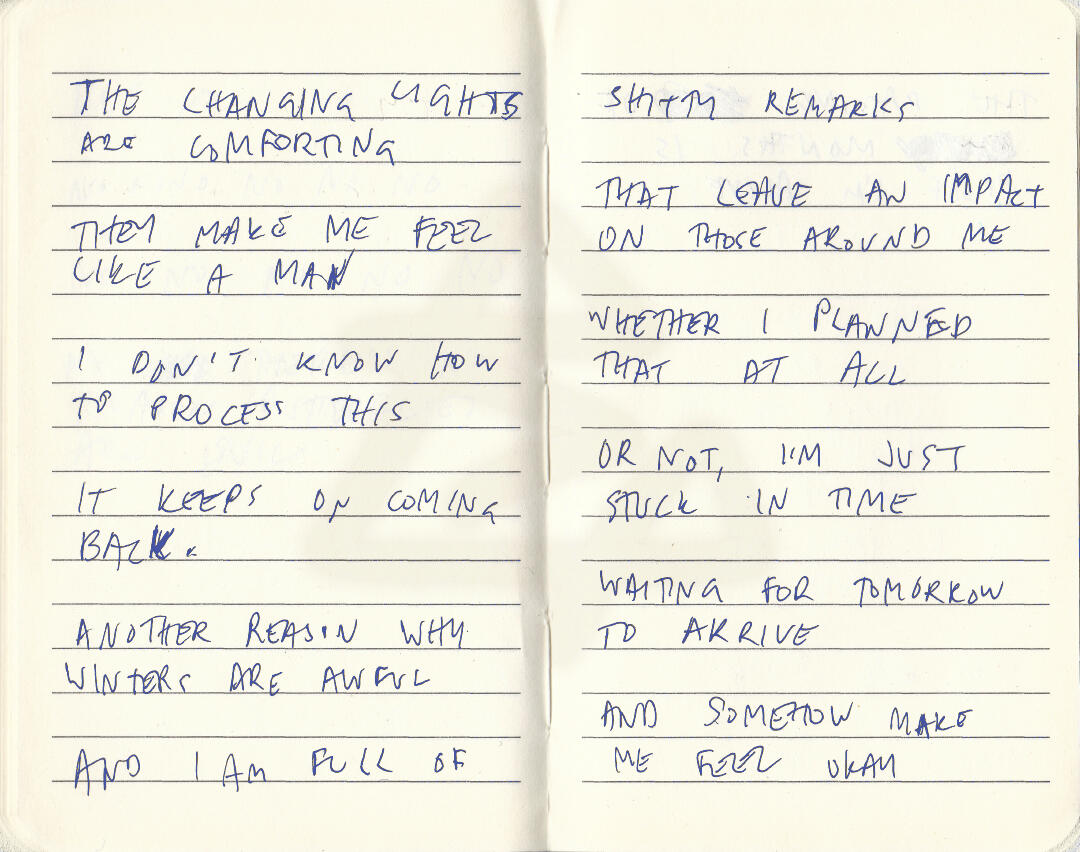 THE CHANGING LIGHTS
ARE COMFORTING
THEY MAKE ME FEEL
LIKE A MAN
I DON'T KNOW HOW
TO PROCESS THIS
IT KEEPS ON COMING
BACK.
ANOTHER REASON WHY
WINTERS ARE AWFUL
AND I AM FULL OF
SHITTY REMARKS
THAT LEAVE AN IMPACT
ON THOSE AROUND ME
WHETHER I PLANNED
THAT AT ALL
OR NOT, I'M JUST
STUCK IN TIME
WAITING FOR TOMORROW
TO ARRIVE
AND SOMEHOW MAKE
ME FEEL OKAY